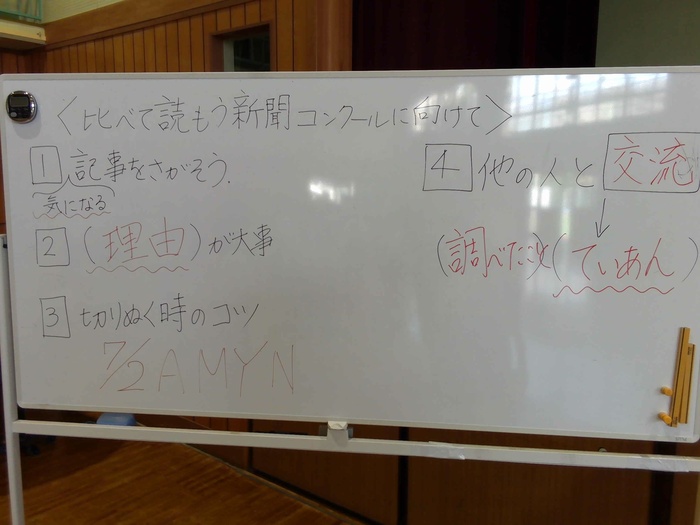 〈比べて読もう新聞コンクールに向けて〉
1 記事をさがそう.
気になる
2 (理由)が大事
3 切りぬく時のコツ
7/2 AMYN
4 他の人と交流
↓
(調べたこと)(ていあん)